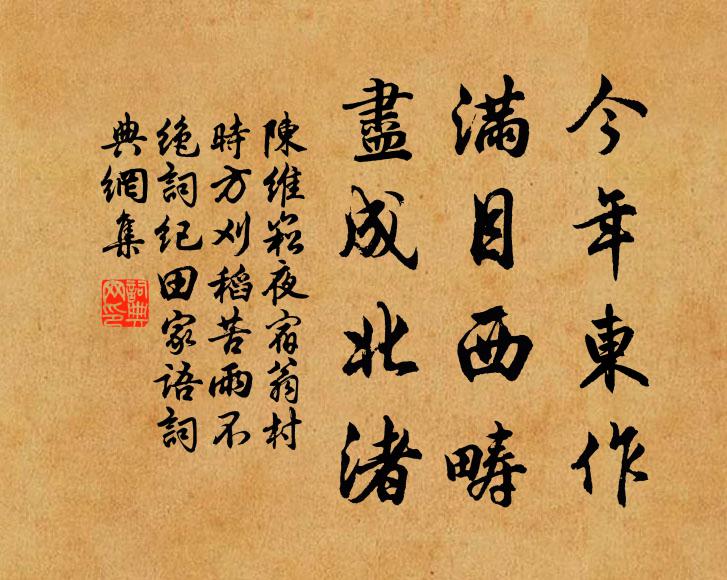 今年東作
滿目西疇
盡成北渚
陳維崧夜宿翁村
時方刈稻苦雨不
絕詞紀田家語詞
典網集
詞典網印